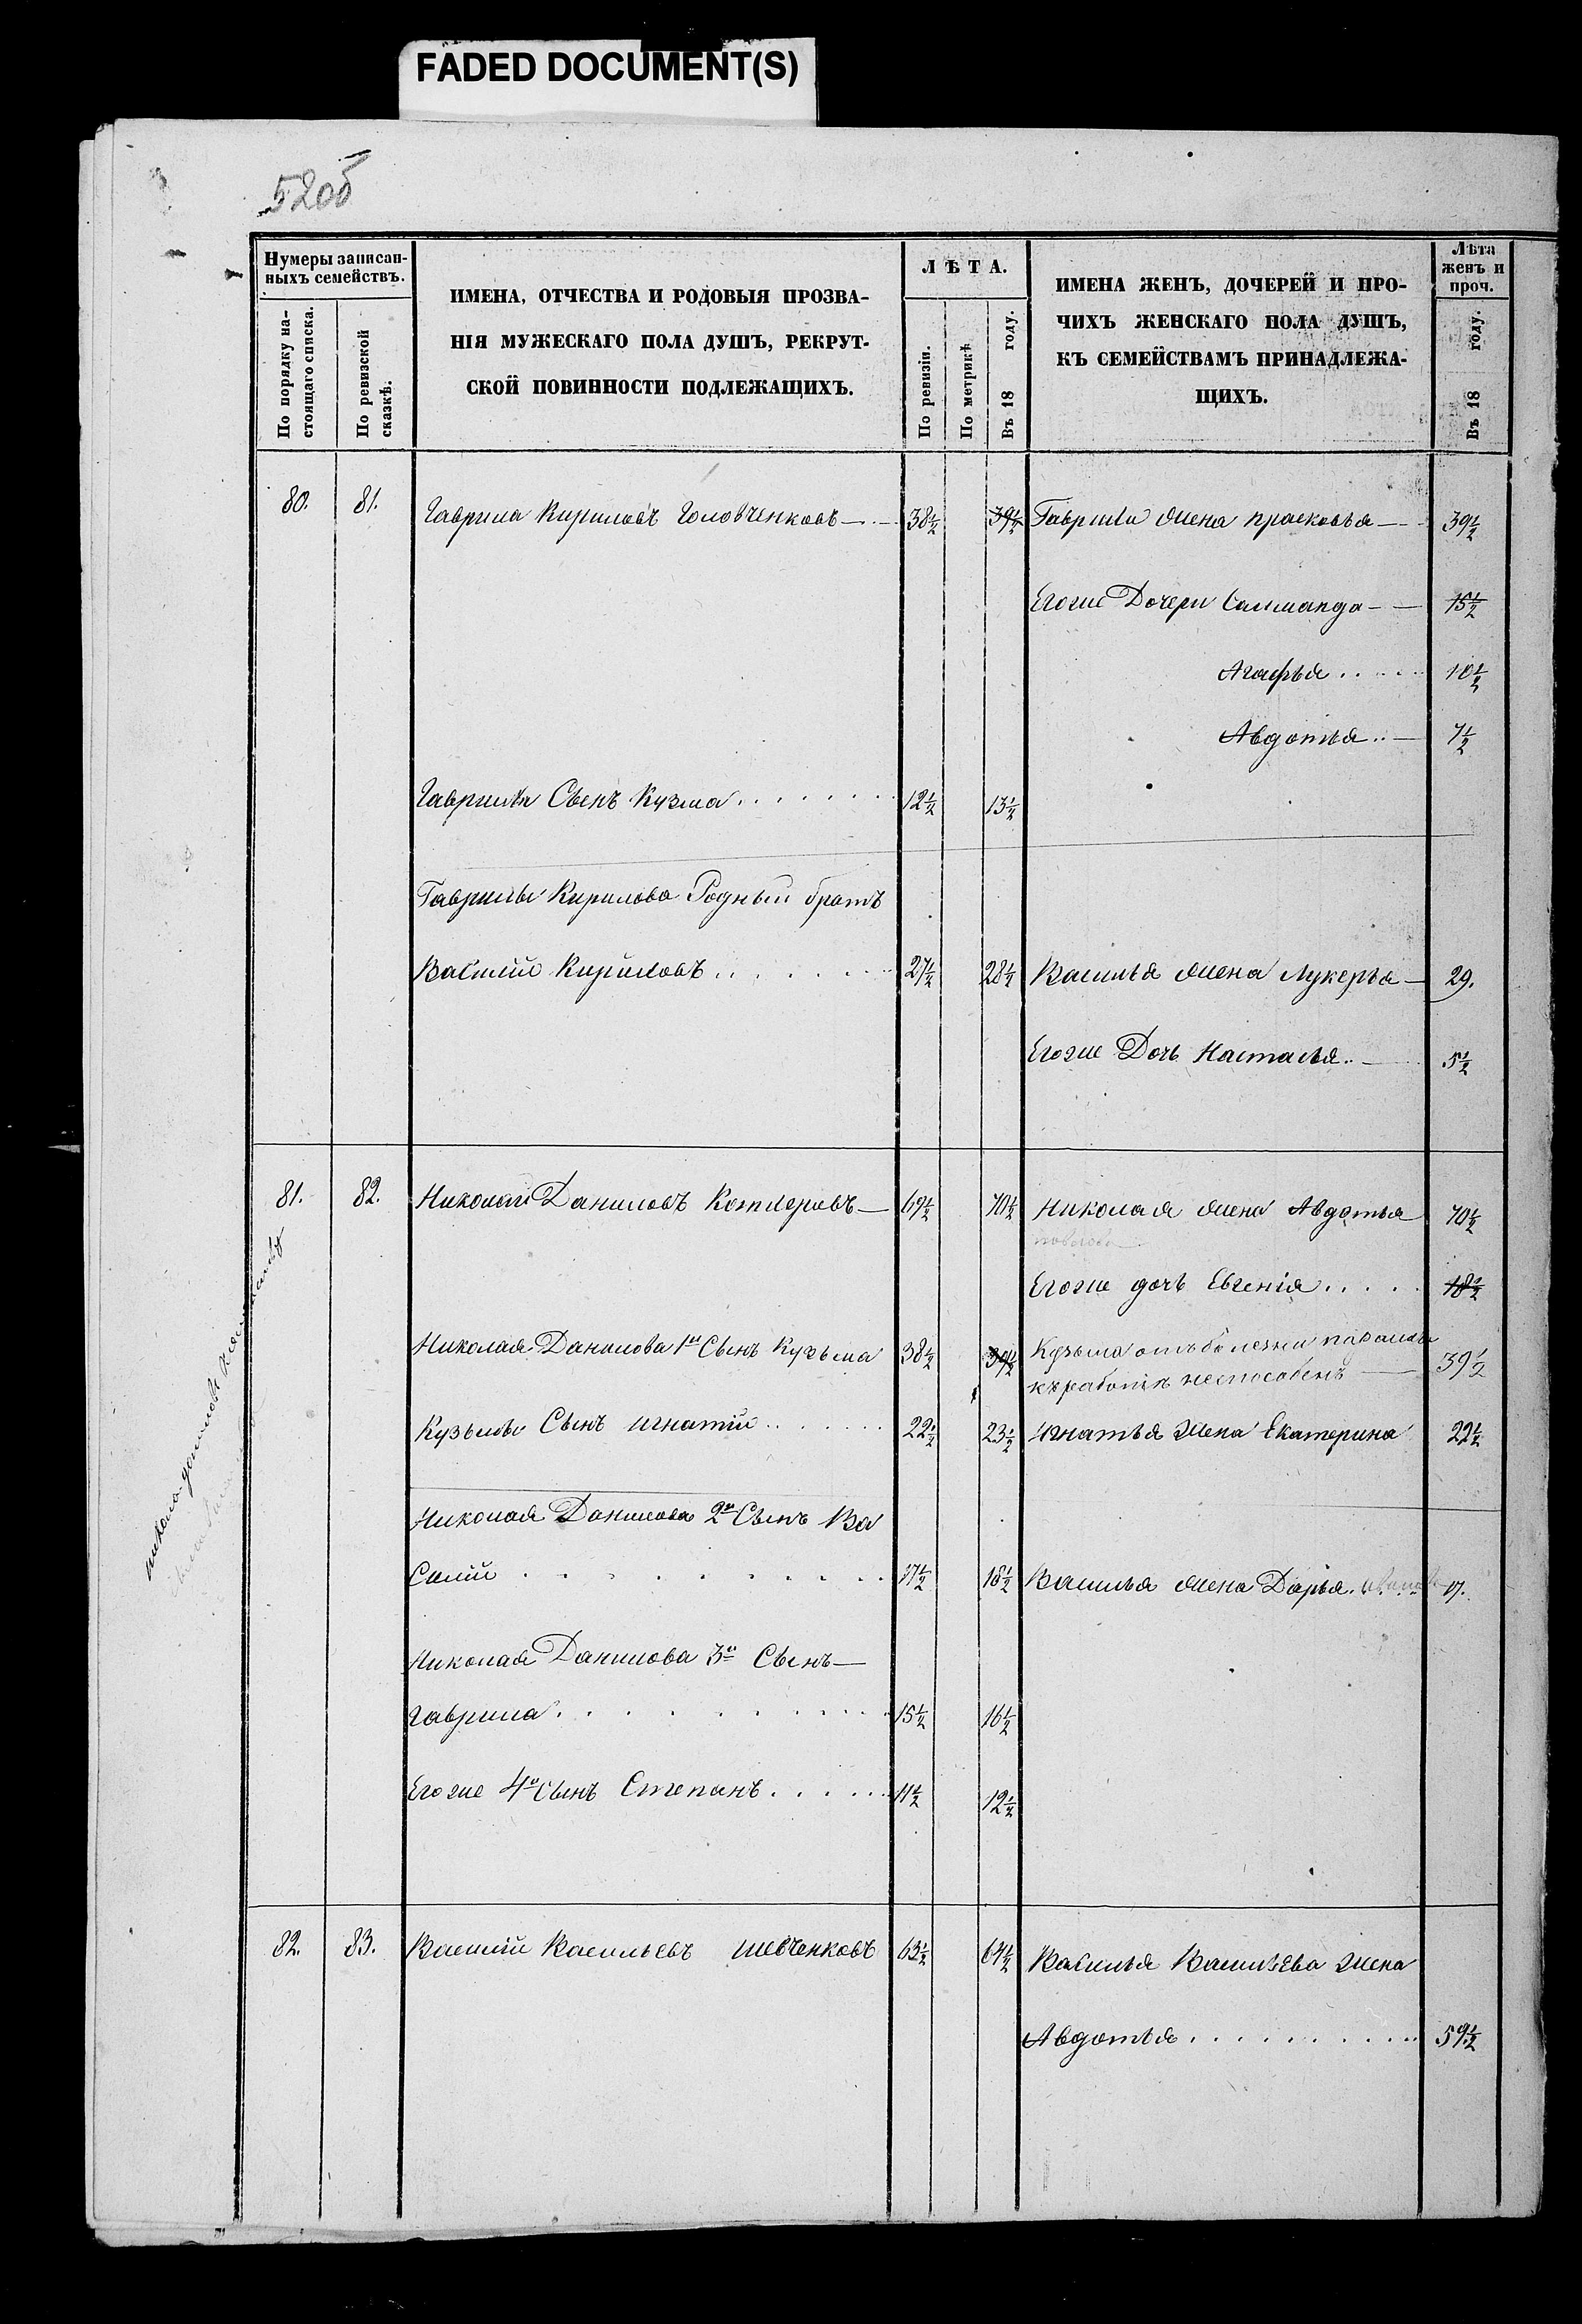 FADED DOCUMENT(S)
52об
Нумеры записан-
ныхъ семействъ.
По порядку на-
стоящаго списка.
По ревизской
сказкѣ.
ИМЕНА, ОТЧЕСТВА И РОДОВЫЯ ПРОЗВА-
НІЯ МУЖЕСКАГО ПОЛА ДУШЪ, РЕКРУТ-
СКОЙ ПОВИННОСТИ ПОДЛЕЖАЩИХЪ.
ЛѢТА.
По ревизіи.
По метрикѣ
Въ 18 году.
ИМЕНА ЖЕНЪ, ДОЧЕРЕЙ И ПРО-
ЧИХЪ ЖЕНСКАГО ПОЛА ДУШЪ,
КЪ СЕМЕЙСТВАМЪ ПРИНАДЛЕЖА-
ЩИХЪ.
Лѣта
женъ и
проч.
Въ 18 году.
80. 81. Гаврила Кириловъ Головченковъ 38½ 39½ Гаврилы жена прасковья 39½
Егоже Дочери 15½
Агафья 10½
Авдотья 7½
Гаврилы Сынъ Кузма 12½ 13½
Гаврилы Кирилова Родный братъ
Василій Кириловъ 27½ 28½ Василья жена Лукерья 29.
Егоже Дочь Насталья 5½
81. 82. Николай Даниловъ 69½ 70½ Николая жена Авдотья 70½
Егоже дочь Евгенія 18½
Николая Данилова 1й Сынъ Кузьма 38½ 39½ Кузьма отъ болезни
къ работѣ неспособенъ 39½
Кузьмы Сынъ игнатій 22½ 23½ Игнатья жена Екатерина 22½
Николая Данилова 2й Сынъ Ва
силій 17½ 18½ Василья жена Дарья 17.
Николая Данилова 3й Сынъ
гаврила 15½ 16½
Егоже 4й Сынъ Степанъ 11½ 12½
82. 83. Василій Васильевъ шевченковъ 63½ 64½ Василья Васильева жена
Авдотья 59½